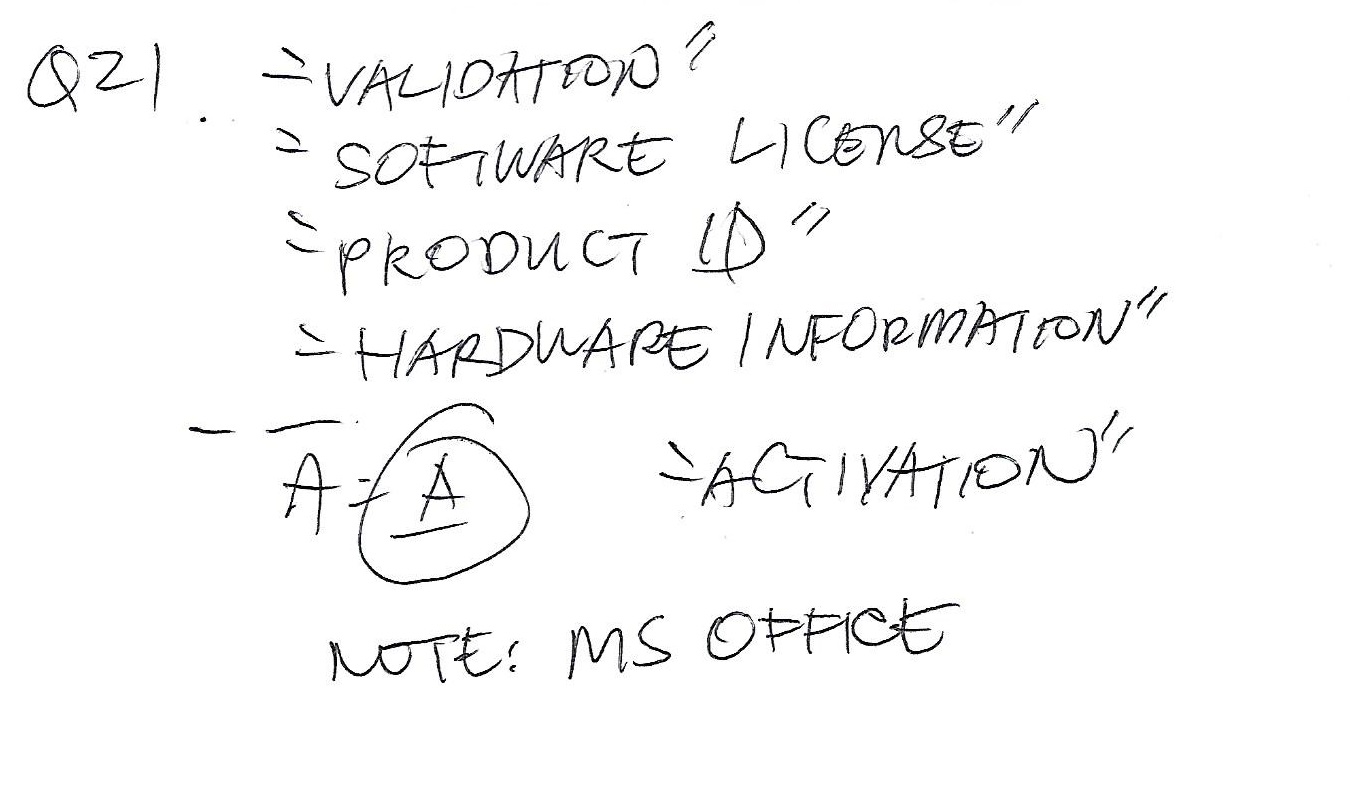 Q21. "VALIDATION"
"SOFTWARE LICENSE"
"PRODUCT ID"
"HARDWARE INFORMATION"
A = A "ACTIVATION"
NOTE: MS OFFICE